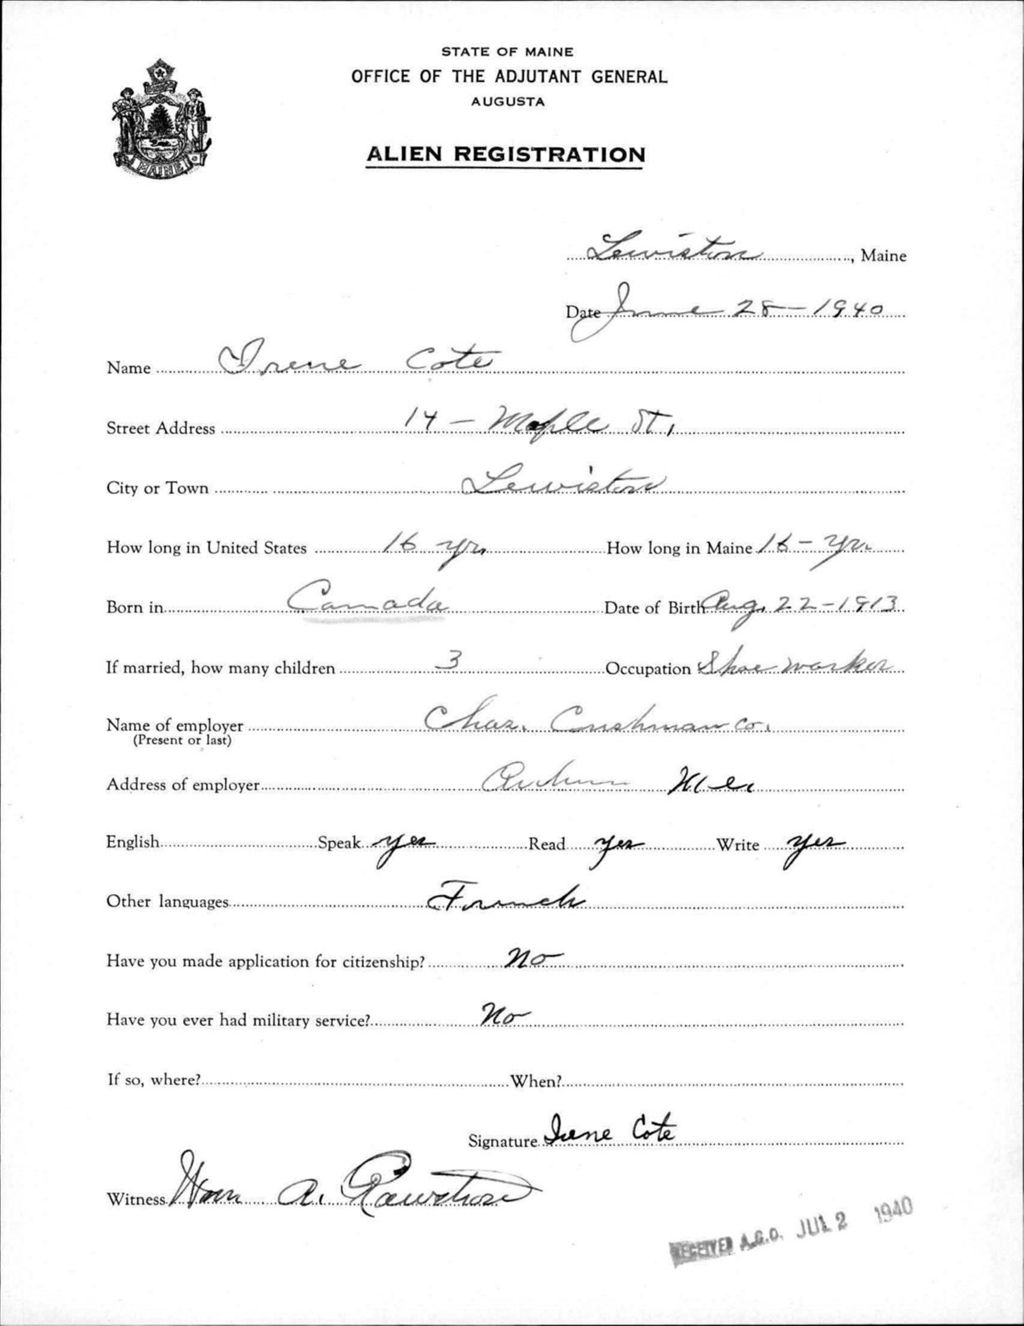 STATE OF MAINE
OFFICE OF THE ADJUTANT GENERAL
AUGUSTA
ALIEN REGISTRATION
MAINE
Lewiston, Maine
Date June 28-1940
Name Irene Cote
Street Address 14 - Maple St,
City or Town Lewiston
How long in United States 16 yrs How long in Maine 16 - yrs.
Born in Canada Date of Birth Aug. 22-1913
If married, how many children 3 Occupation Shoe worker
Name of employer Chas. Cushman Co.
(Present or last)
Address of employer Auburn Me.
English Speak yes Read yes Write yes
Other languages French
Have you made application for citizenship? No
Have you ever had military service? No
If so, where? When?
Signature Irene Cote
Witness Wm A. Rawstron
RECEIVED A.G.O. JUL 2 1940